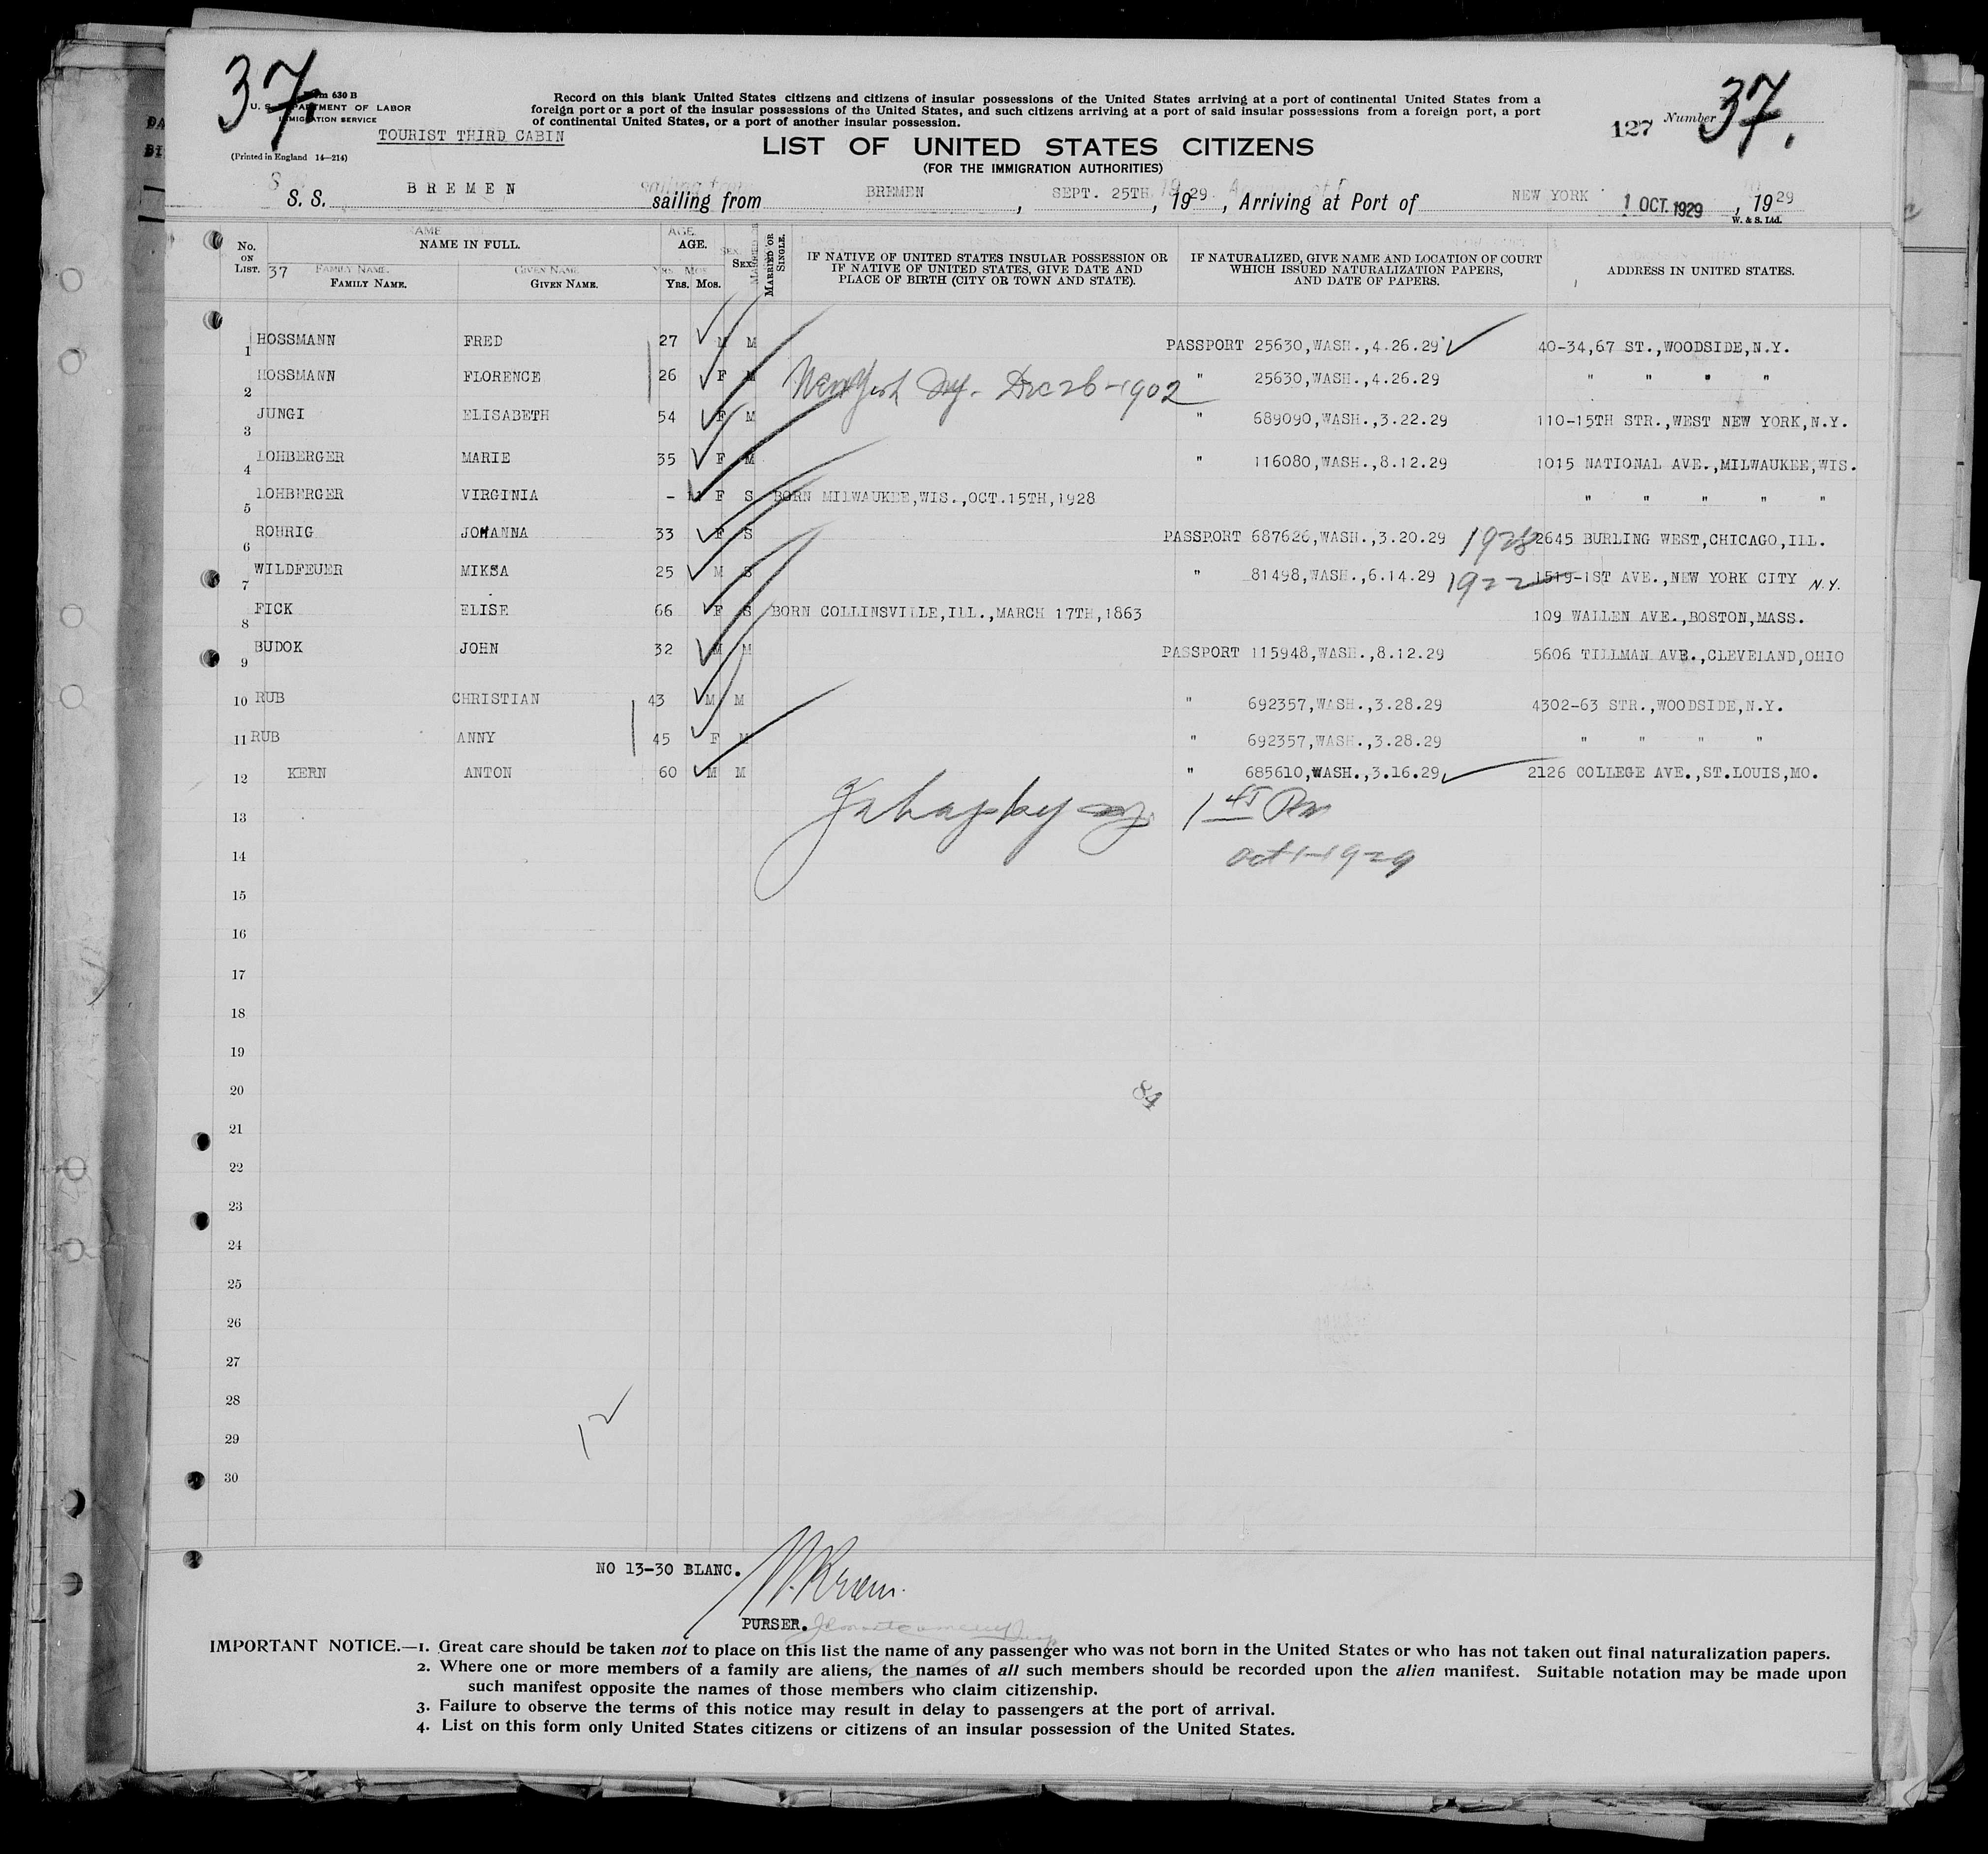 37
Form 630 B
U. S. DEPARTMENT OF LABOR
IMMIGRATION SERVICE
TOURIST THIRD CABIN
(Printed in England 14—214)
Record on this blank United States citizens and citizens of insular possessions of the United States arriving at a port of continental United States from a
foreign port or a port of the insular possessions of the United States, and such citizens arriving at a port of said insular possessions from a foreign port, a port
of continental United States, or a port of another insular possession.
127 Number 37.
LIST OF UNITED STATES CITIZENS
(FOR THE IMMIGRATION AUTHORITIES)
S. S. BREMEN sailing from BREMEN, SEPT. 25TH, 1929, Arriving at Port of NEW YORK 1 OCT. 1929, 1929
W. & S. Ltd.
No. ON LIST. 37 NAME IN FULL. FAMILY NAME. GIVEN NAME. AGE. YRS. MOS. SEX MARRIED OR SINGLE. IF NATIVE OF UNITED STATES INSULAR POSSESSION OR IF NATIVE OF UNITED STATES, GIVE DATE AND PLACE OF BIRTH (CITY OR TOWN AND STATE). IF NATURALIZED, GIVE NAME AND LOCATION OF COURT WHICH ISSUED NATURALIZATION PAPERS, AND DATE OF PAPERS. ADDRESS IN UNITED STATES.
1 HOSSMANN FRED 27 M M PASSPORT 25630,WASH.,4.26.29 40-34,67 ST.,WOODSIDE,N.Y.
2 HOSSMANN FLORENCE 26 F M New York Dec 26-1902 " 25630,WASH.,4.26.29 " " " "
3 JUNGI ELISABETH 54 F M " 689090,WASH.,3.22.29 110-15TH STR.,WEST NEW YORK,N.Y.
4 LOHBERGER MARIE 35 F M " 116080,WASH.,8.12.29 1015 NATIONAL AVE.,MILWAUKEE,WIS.
5 LOHBERGER VIRGINIA - 11 F S BORN MILWAUKEE,WIS.,OCT.15TH,1928 " " " " "
6 ROHRIG JOHANNA 33 F S PASSPORT 687626,WASH.,3.20.29 1928 2645 BURLING WEST,CHICAGO,ILL.
7 WILDFEUER MIKSA 25 M S " 81498,WASH.,6.14.29 1922 1519-1ST AVE.,NEW YORK CITY N.Y.
8 FICK ELISE 66 F S BORN COLLINSVILLE,ILL.,MARCH 17TH,1863 109 WALLEN AVE.,BOSTON,MASS.
9 BUDOK JOHN 32 M M PASSPORT 115948,WASH.,8.12.29 5606 TILLMAN AVE.,CLEVELAND,OHIO
10 RUB CHRISTIAN 43 M M " 692357,WASH.,3.28.29 4302-63 STR.,WOODSIDE,N.Y.
11 RUB ANNY 45 F M " 692357,WASH.,3.28.29 " " " "
12 KERN ANTON 60 M M " 685610,WASH.,3.16.29 2126 COLLEGE AVE.,ST.LOUIS,MO.
13 1st
14 Oct 1-1929
15
16
17
18
19
20 84
21
22
23
24
25
26
27
28
29 12
30
NO 13-30 BLANC.
PURSER.
IMPORTANT NOTICE.—1. Great care should be taken not to place on this list the name of any passenger who was not born in the United States or who has not taken out final naturalization papers.
2. Where one or more members of a family are aliens, the names of all such members should be recorded upon the alien manifest. Suitable notation may be made upon
such manifest opposite the names of those members who claim citizenship.
3. Failure to observe the terms of this notice may result in delay to passengers at the port of arrival.
4. List on this form only United States citizens or citizens of an insular possession of the United States.